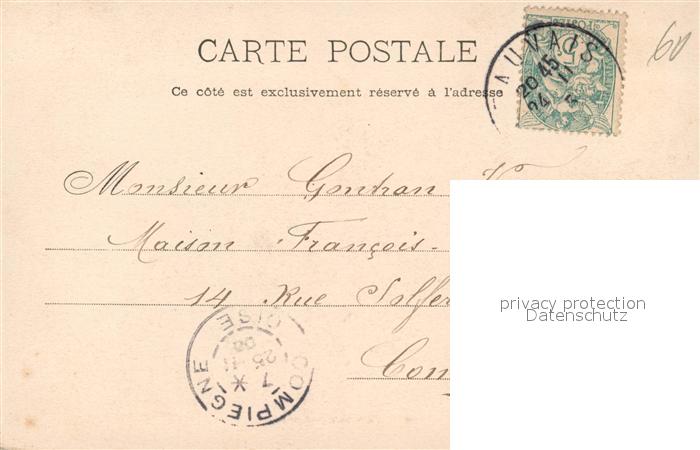 CARTE POSTALE
Ce côté est exclusivement réservé à l'adresse
60
AUVAIS
20 45
24 11
POSTES
5
Monsieur Gontran V
Maison François-
14 Rue Solfer
Com
privacy protection
Datenschutz
COMPIEGNE
OISE
7 *
25 11
03